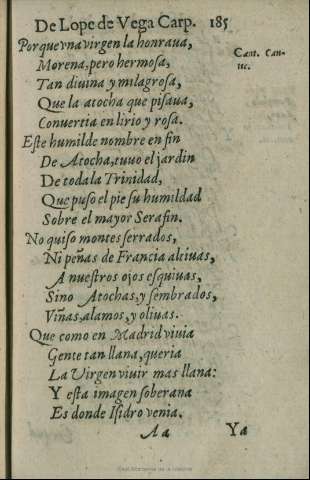 De Lope de Vega Carp. 185
Porque vna virgen la honraua,
Cant. Can-
tic.
Morena, pero hermosa,
Tan diuina y milagrosa,
Que la atocha que pisaua,
Conuertia en lirio y rosa.
Este humilde nombre en fin
De Atocha, tuuo el jardin
De toda la Trinidad,
Que puso el pie su humildad
Sobre el mayor Serafin.
No quiso montes serrados,
Ni peñas de Francia altiuas,
A nuestros ojos esquiuas,
Sino Atochas, y sembrados,
Viñas, alamos, y oliuas.
Que como en Madrid viuia
Gente tan llana, queria
La Virgen viuir mas llana:
Y esta imagen soberana
Es donde Isidro venia.
Aa Ya
Real Academia de la Historia